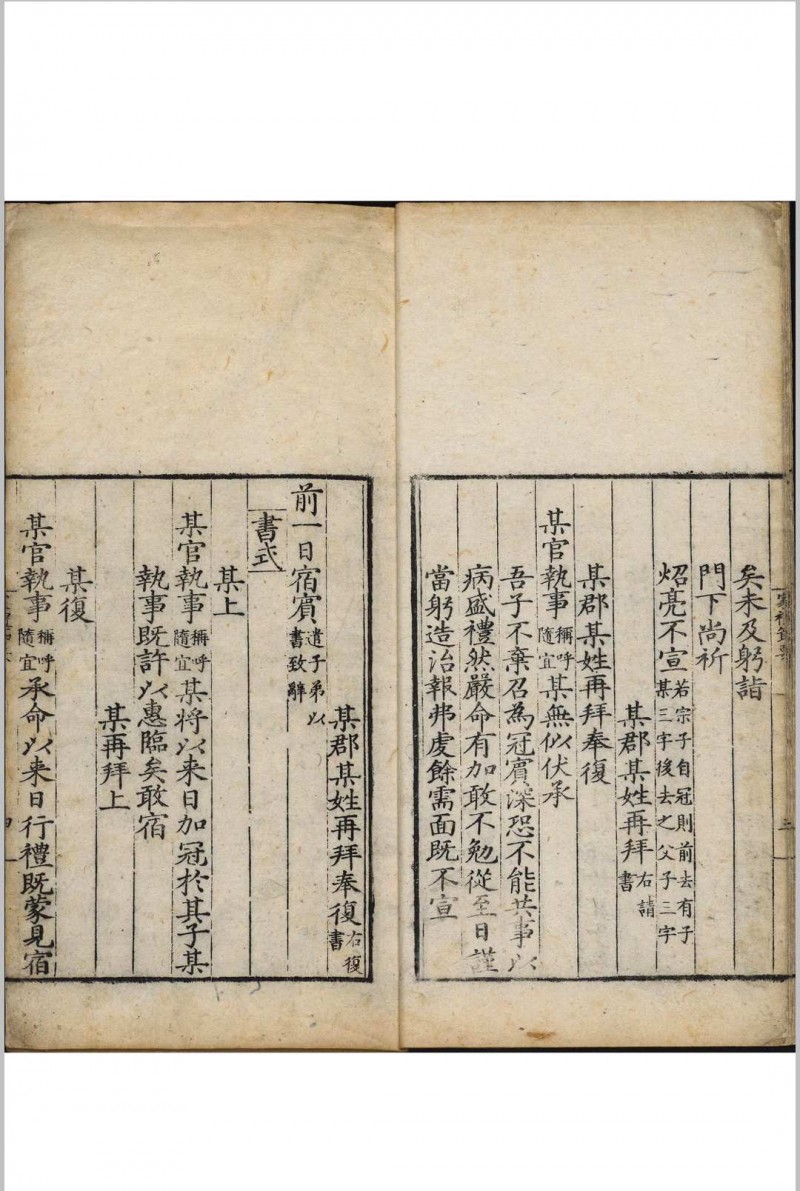 矣未及躬詣
門下尚祈
炤亮不宣若宗子自冠則前去有子某三字後去之父子三字
某郡某姓再拜右請書
某郡某姓再拜奉復
某官執事稱呼隨宜某無似伏承
吾子不棄召為冠賓深恐不能共事以
病盛禮然嚴命有加敢不勉從至日謹
當躬造治報弗虔餘需面既不宣
某郡某姓再拜奉復右復書
前一日宿賓遣子弟以書致辭
書式
某上
某官執事稱呼隨宜某將以来日加冠於其子某
執事既許以惠臨矣敢宿
某再拜上
某復
某官執事稱呼隨宜承命以来日行禮既蒙見宿